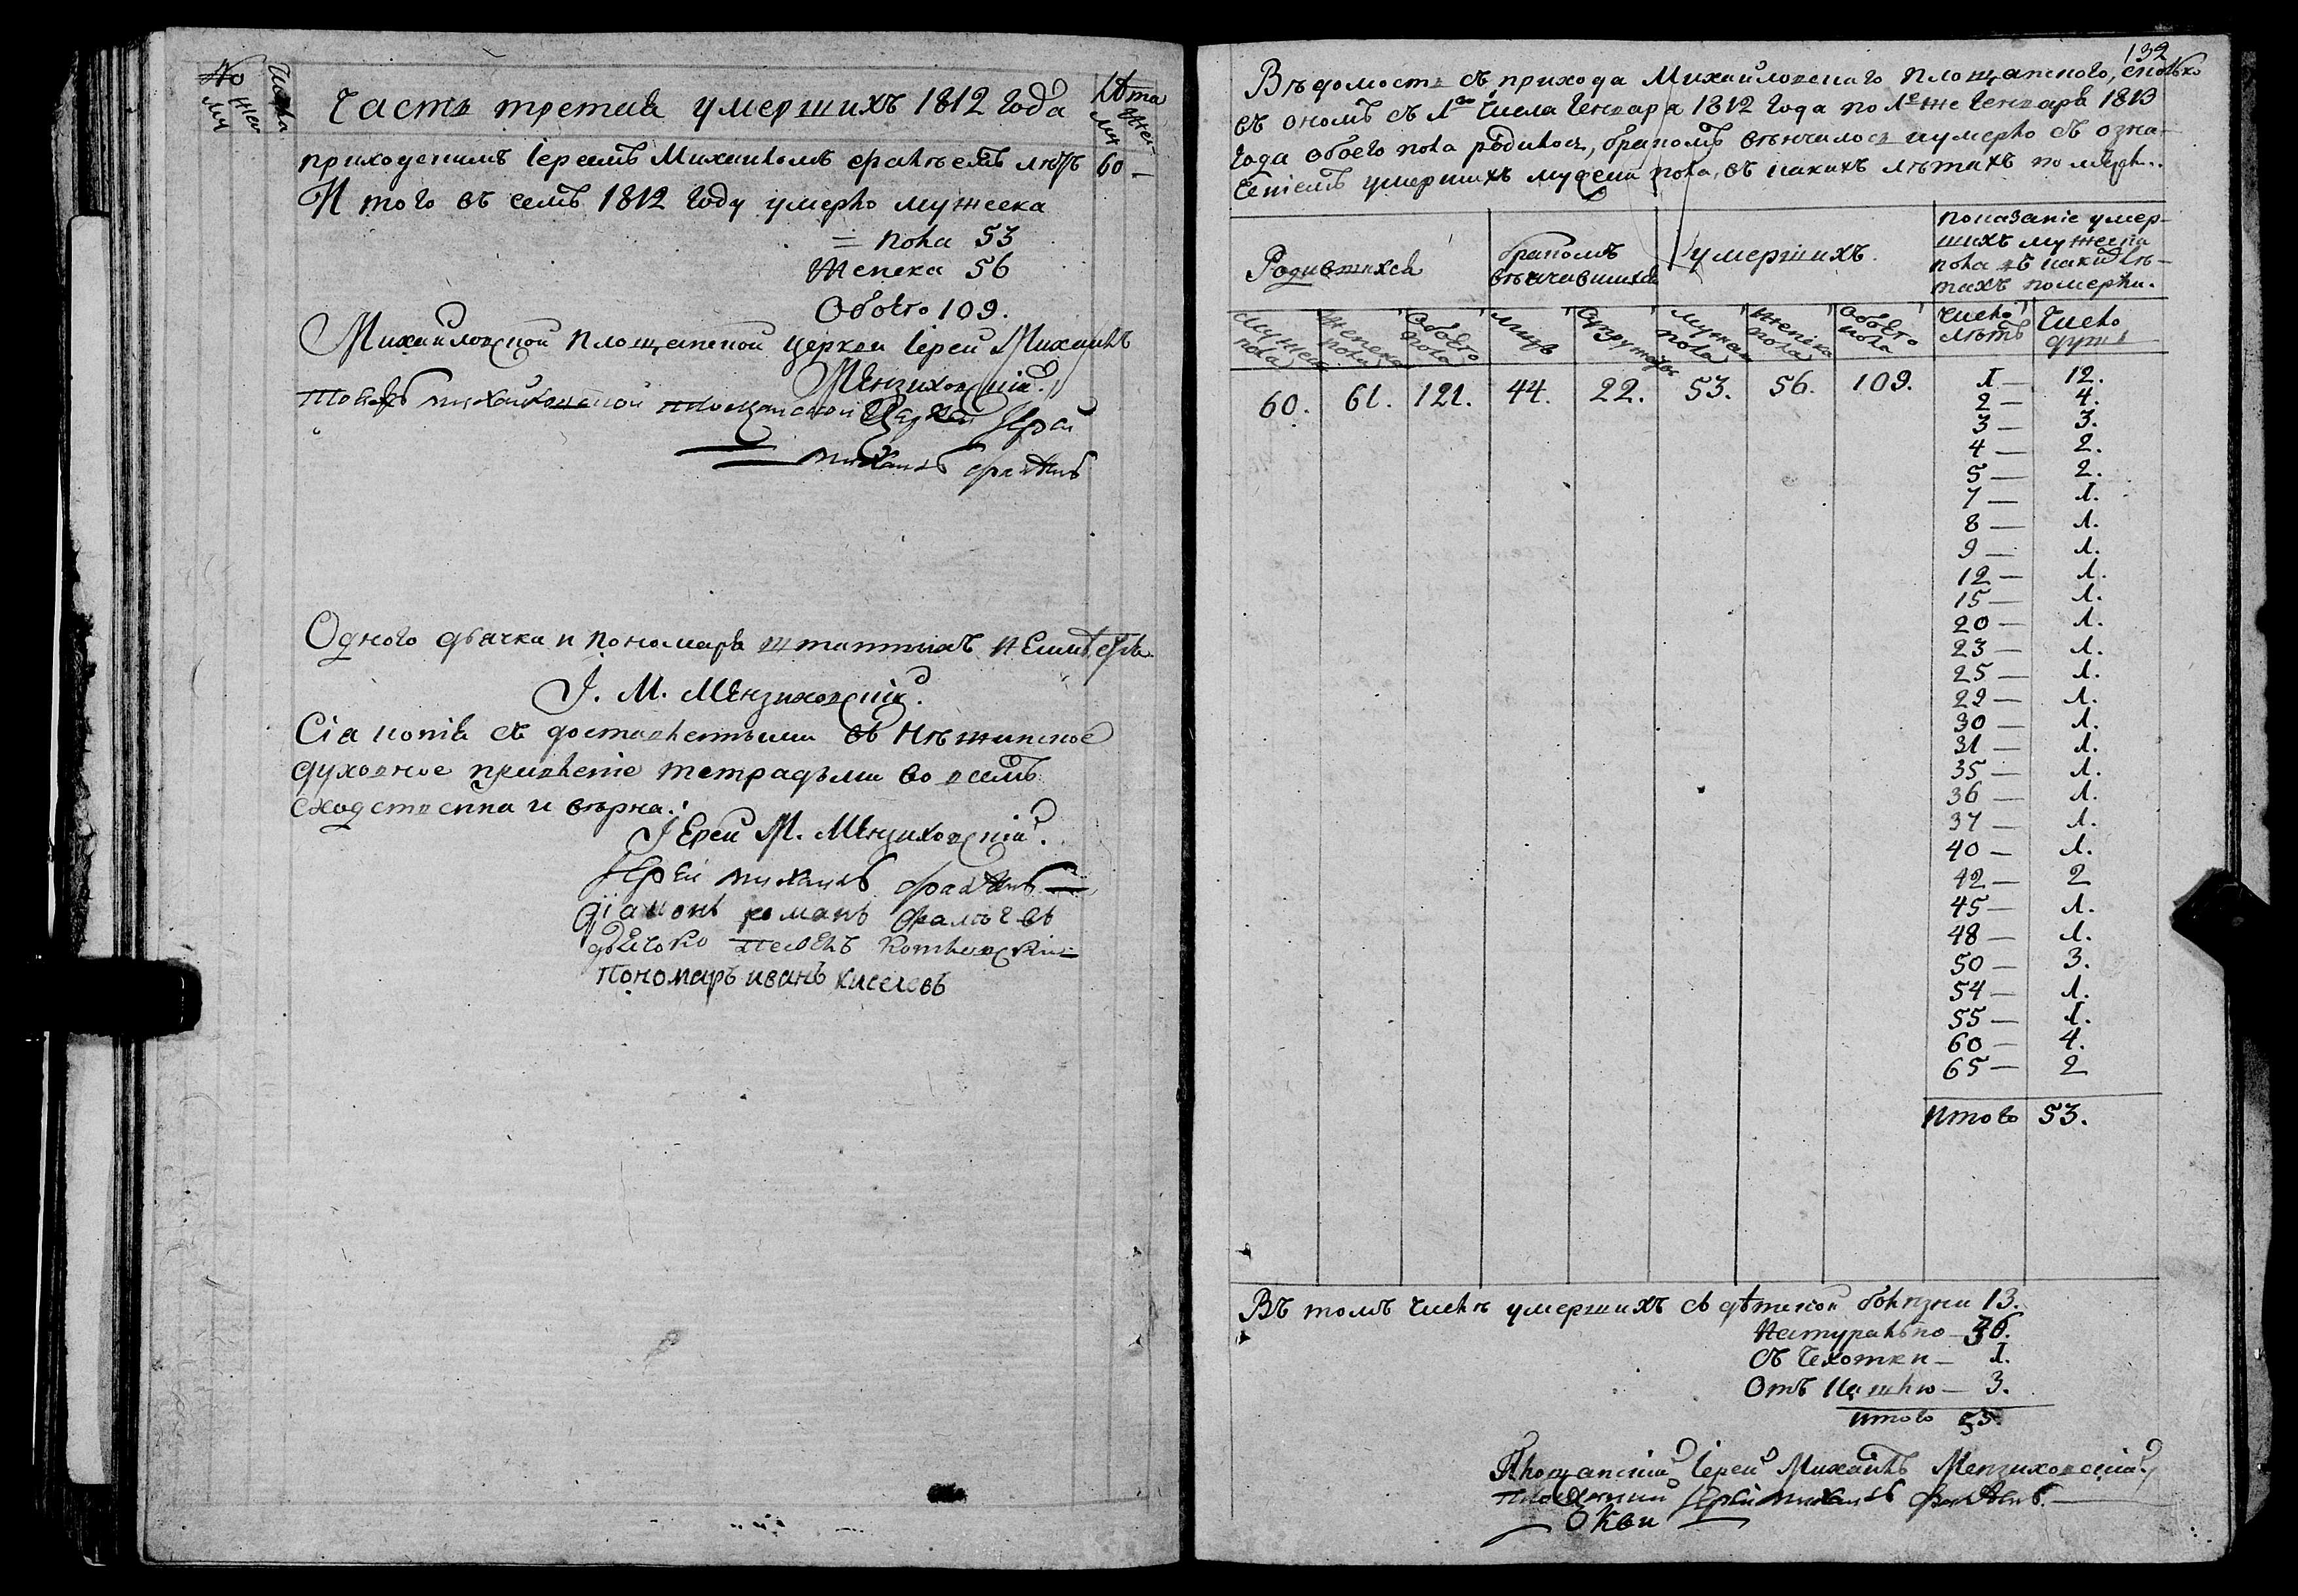 №
муж
жен
Числа
Часть третия умершихъ 1812 года
Лѣта
муж
жен
приходскимъ Іереемъ Михаиломъ 60 —
И того въ семъ 1812 году умерло мужеска
= пола 53
Женска 56
Обоего 109.
Михайловской Площанской церкви Іерей Михаилъ
Мензиховскій.
тояжъ михайловской площанской церкви Іерей
михаилъ
Одного дьячка и пономаря штатныхъ
І. М. Мензиховскій.
Сіа копія съ доставленными въ Нѣжинское
духовное правленіе тетрадьми во всемъ
сходственна и вѣрна:
Іерей М. Мензиховскій.
Іерей михаилъ
діаконъ романъ
дьячокъ
пономаръ иванъ киселевъ
132
Вѣдомость съ прихода Михайловскаго площанского, сколько
въ ономъ съ 1го числа Генваря 1812 года по 1е же Генваря 1813
года обоего пола родилось, бракомъ вѣнчалось и умерло съ озна-
ченіемъ умершихъ мужеска пола, въ какихъ лѣтахъ померли.
Родившихся
бракомъ вѣнчавшихся
умершихъ.
показаніе умер-
шихъ мужеска
пола въ какихъ лѣ-
тахъ померли.
мужеска пола
женска пола
обоего пола
лицъ
супружествъ
мужеска пола
женска пола
обоего пола
число лѣтъ
число душъ
60. 61. 121. 44. 22. 53. 56. 109. 1 — 12.
2 — 4.
3 — 3.
4 — 2.
5 — 2.
7 — 1.
8 — 1.
9 — 1.
12 — 1.
15 — 1.
20 — 1.
23 — 1.
25 — 1.
29 — 1.
30 — 1.
31 — 1.
35 — 1.
36 — 1.
37 — 1.
40 — 1.
42 — 2
45 — 1.
48 — 1.
50 — 3.
54 — 1.
55 — 1.
60 — 4.
65 — 2
Итого 53.
Въ томъ числѣ умершихъ съ дѣтской болѣзни 13.
Натурально — 36.
Съ Чехотки — 1.
Отъ Кашлю — 3.
итого 53.
Площанскій Іерей Михаилъ Мензиховскій
площанскій Іерей михаилъ